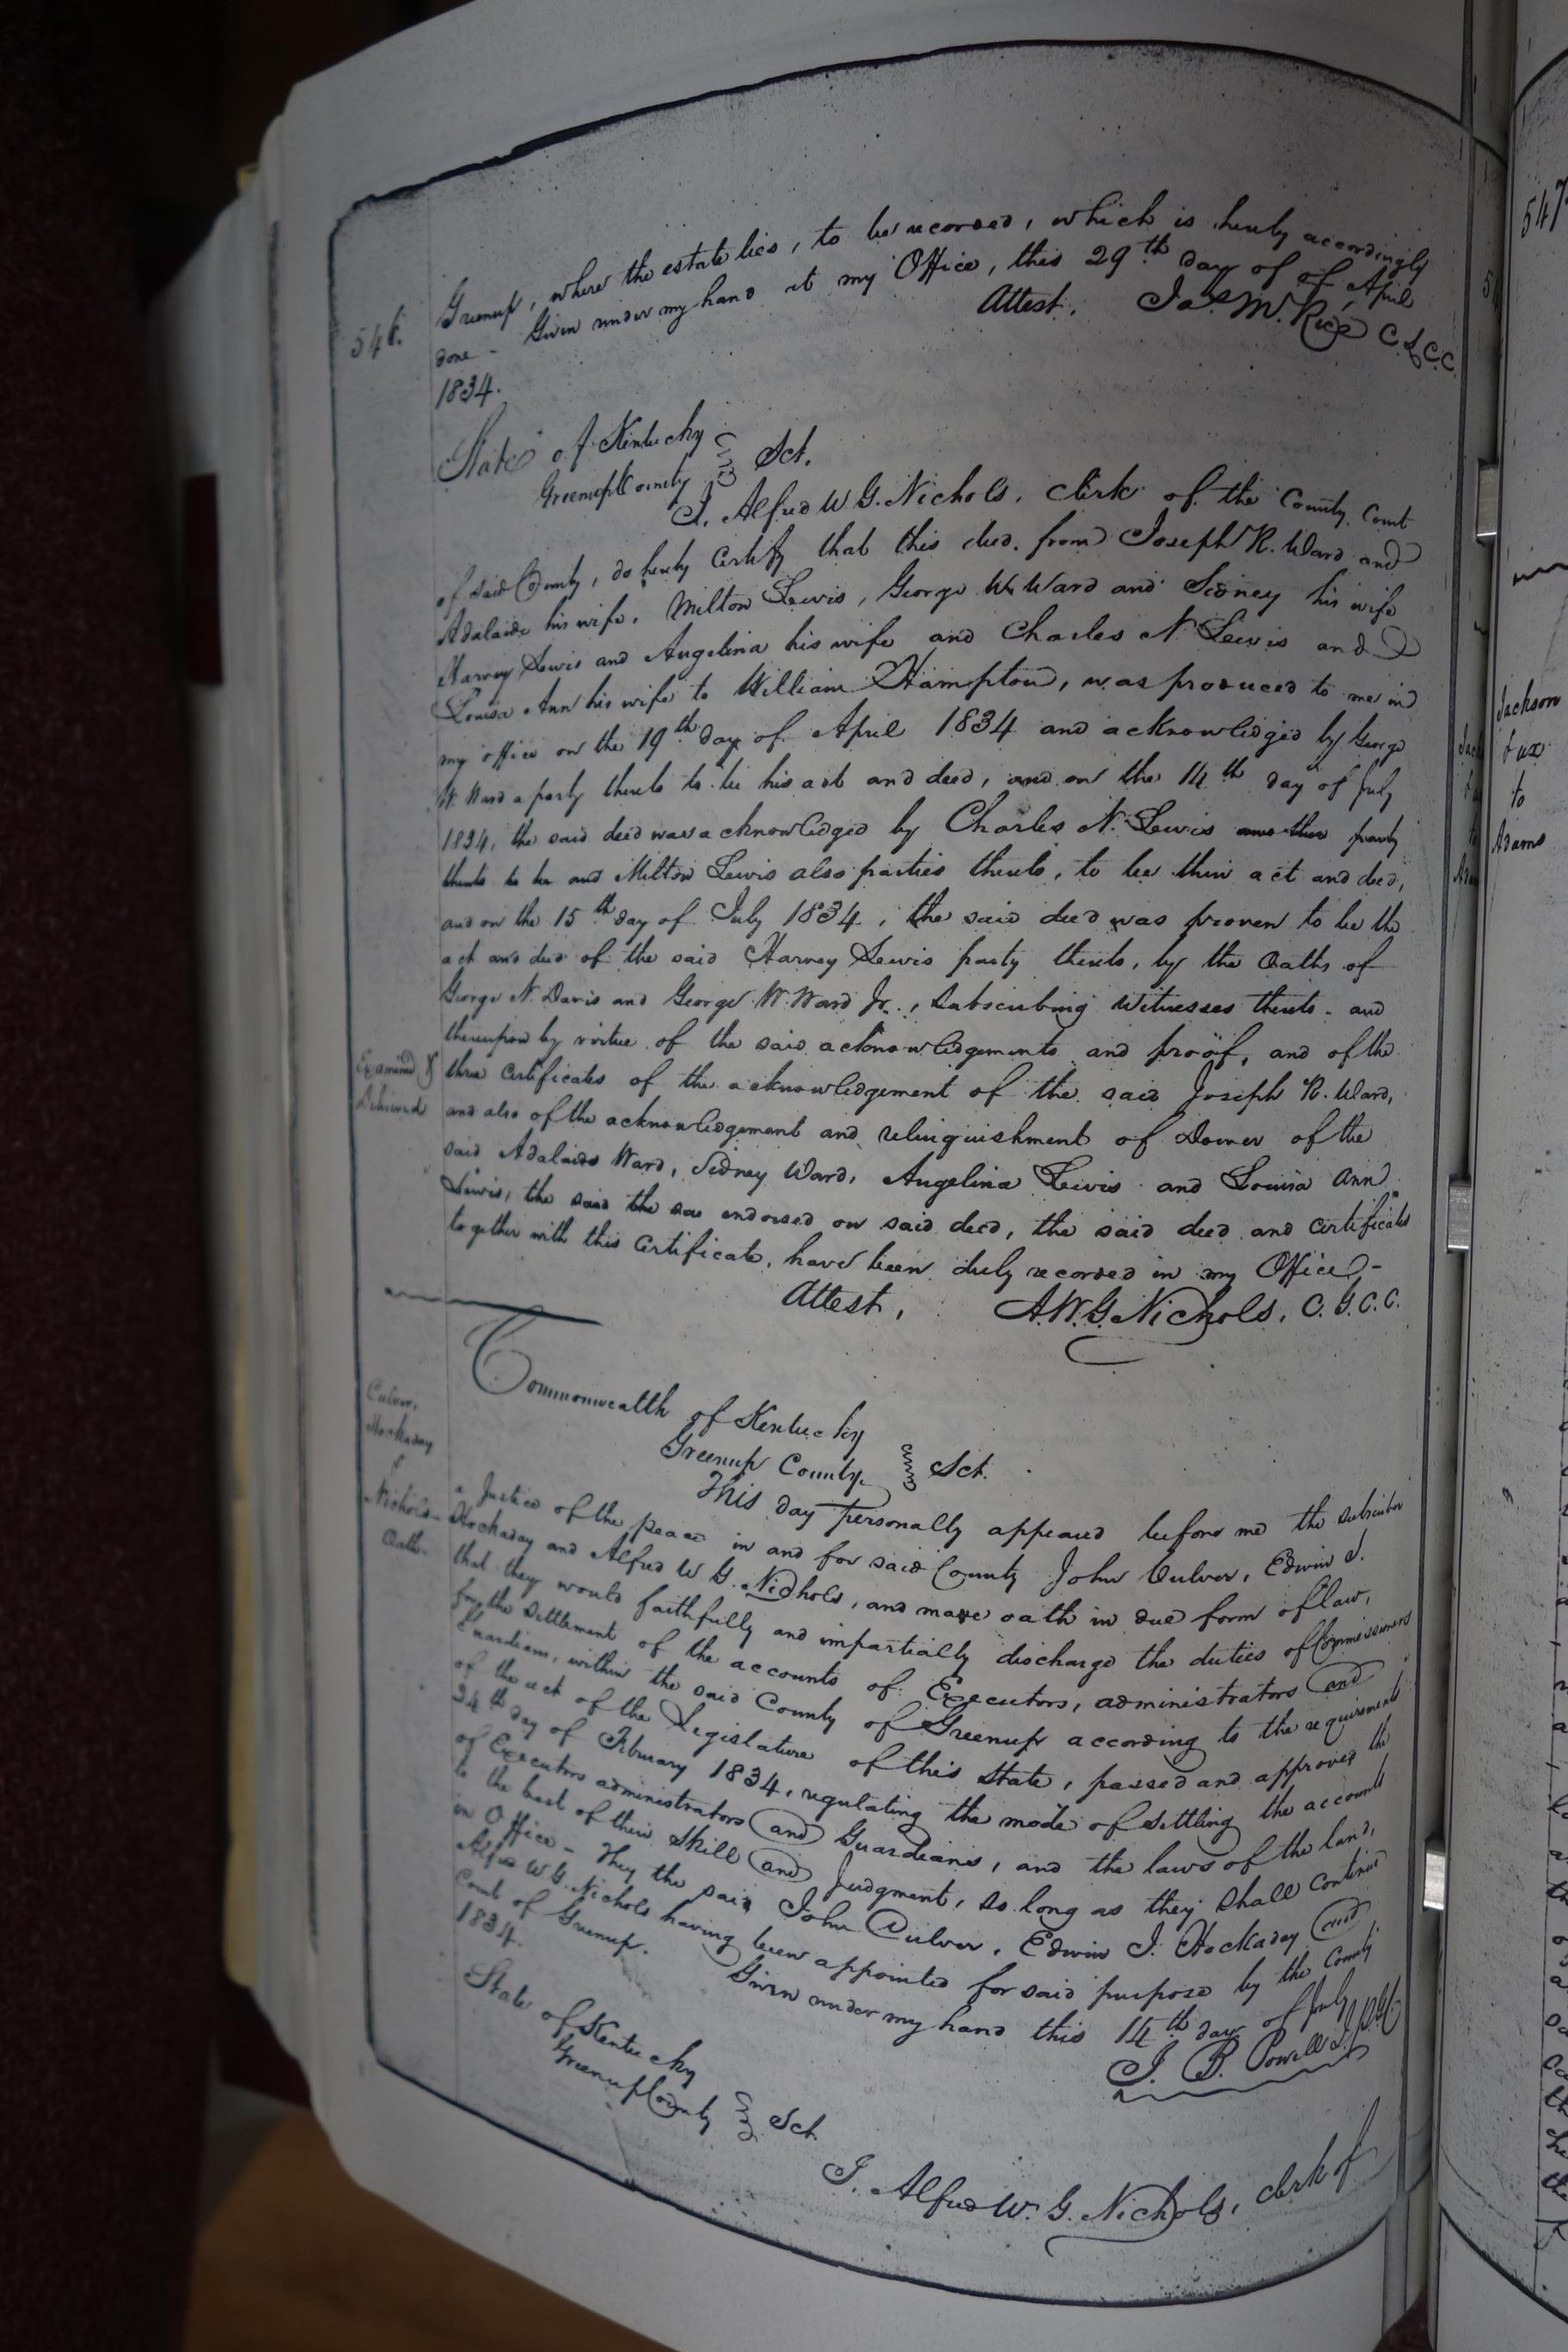 546.
Greenup, where the estate lies, to be recorded, which is hereby accordingly
done - Given under my hand at my Office, this 29th day of of April
1834.
Attest. Jas. M. Rice C.L.C.C.
State of Kentucky
Greenup County Sct.
I, Alfred W. G. Nichols, Clerk of the County Court
of said County, do hereby certify that this deed, from Joseph R. Ward and
Adalaide his wife, Milton Lewis, George W. Ward and Sidney his wife
Harvey Lewis and Angelina his wife and Charles N. Lewis and
Louisa Ann his wife to William Hampton, was produced to me in
my office on the 19th day of April 1834 and acknowledged by George
W. Ward a party thereto to be his act and deed, and on the 14th day of July
1834, the said deed was acknowledged by Charles N. Lewis another party
thereto to be and Milton Lewis also parties thereto, to be their act and deed,
and on the 15th day of July 1834, the said deed was proven to be the
act and deed of the said Harvey Lewis party thereto, by the Oaths of
George N. Davis and George W. Ward Jr., Subscribing Witnesses thereto - and
thereupon by virtue of the said acknowledgements and proof, and of the
Examined &
Delivered
three Certificates of the acknowledgement of the said Joseph R. Ward,
and also of the acknowledgement and relinquishment of Dower of the
said Adalaide Ward, Sidney Ward, Angelina Lewis and Louisa Ann
Lewis, the said the endorsed on said deed, the said deed and certificates
together with this Certificate, have been duly recorded in my Office -
Attest, A.W.G. Nichols, C.G.C.C.
Commonwealth of Kentucky
Greenup County Sct.
Culver,
Hockaday
&
Nichols-
Oath.
This day personally appeared before me the subscriber
a Justice of the peace in and for said County John Culver, Edwin J.
Hockaday and Alfred W. G. Nichols, and made oath in due form of law,
that they would faithfully and impartially discharge the duties of Commissioners
for the settlement of the accounts of Executors, administrators and
Guardians, within the said County of Greenup according to the requirements
of the act of the Legislature of this State, passed and approved the
24th day of February 1834, regulating the mode of settling the accounts
of Executors administrators and Guardians, and the laws of the land,
to the best of their Skill and Judgment, so long as they shall continue
in Office - They the said John Culver, Edwin J. Hockaday and
Alfred W. G. Nichols having been appointed for said purpose by the County
Court of Greenup. Given under my hand this 14th day of July
1834.
J. B. Powell J.P.G.C.
State of Kentucky
Greenup County Sct.
I, Alfred W. G. Nichols, clerk of
547
Jackson
& ux
to
Adams